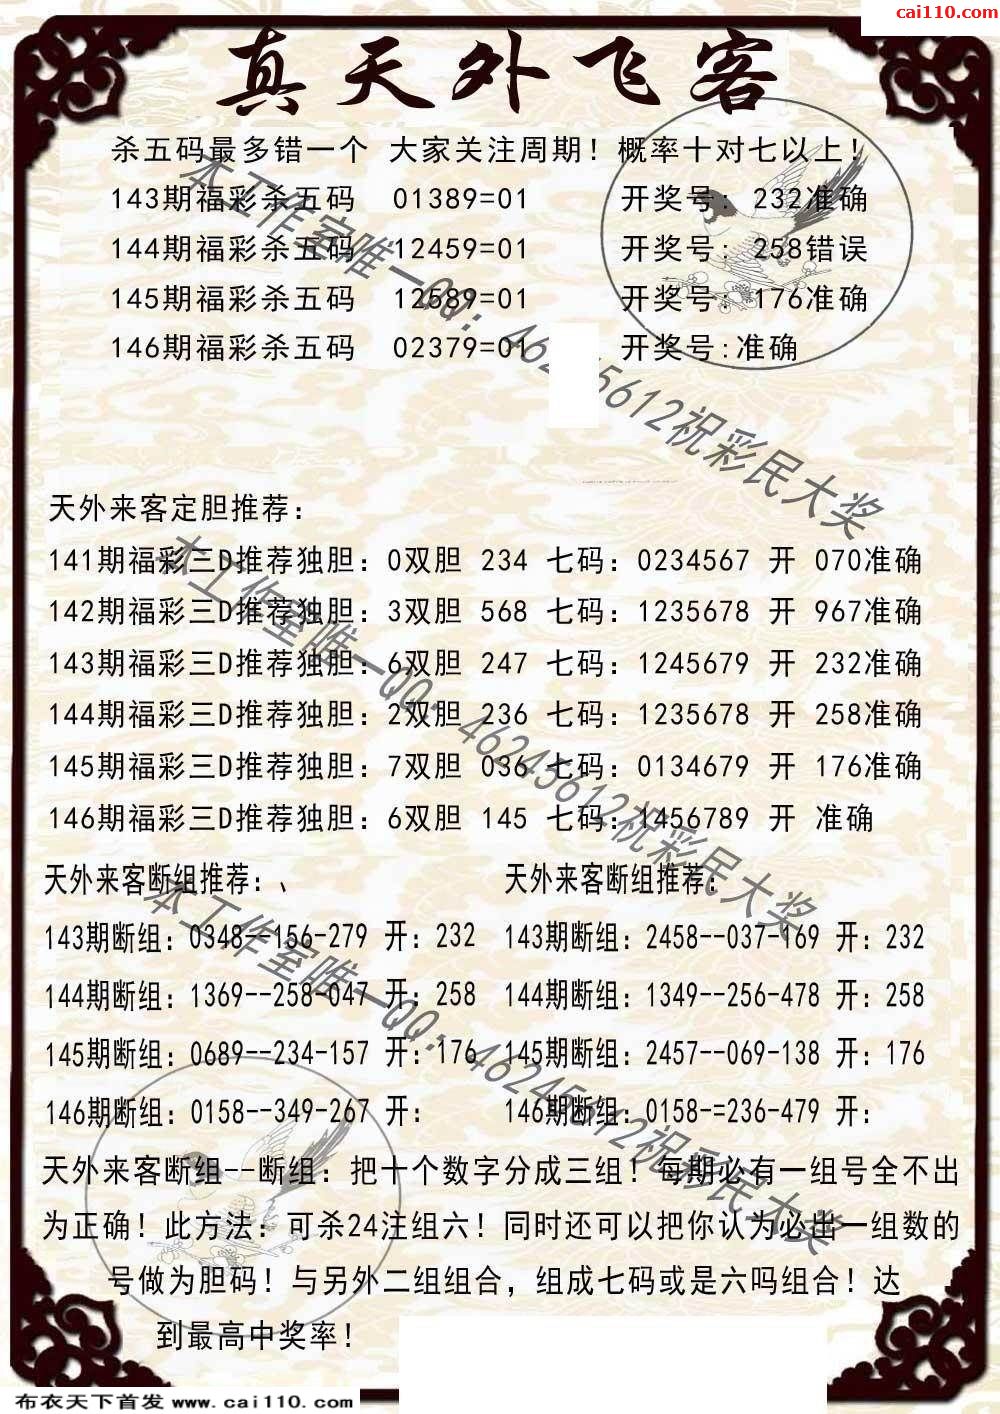 cai110.com
真天外飞客
杀五码最多错一个 大家关注周期！概率十对七以上！
143期福彩杀五码 01389=01 开奖号：232准确
144期福彩杀五码 12459=01 开奖号：258错误
145期福彩杀五码 12589=01 开奖号：176准确
146期福彩杀五码 02379=01 开奖号:准确
本工作室唯一QQ：46245612祝彩民大奖
天外来客定胆推荐：
141期福彩三D推荐独胆：0双胆 234 七码：0234567 开 070准确
142期福彩三D推荐独胆：3双胆 568 七码：1235678 开 967准确
143期福彩三D推荐独胆：6双胆 247 七码：1245679 开 232准确
144期福彩三D推荐独胆：2双胆 236 七码：1235678 开 258准确
145期福彩三D推荐独胆：7双胆 036 七码：0134679 开 176准确
146期福彩三D推荐独胆：6双胆 145 七码：1456789 开 准确
本工作室唯一QQ：46245612祝彩民大奖
天外来客断组推荐：、 天外来客断组推荐：
143期断组：0348--156-279 开：232 143期断组：2458--037-169 开：232
144期断组：1369--258-047 开：258 144期断组：1349--256-478 开：258
145期断组：0689--234-157 开：176 145期断组：2457--069-138 开：176
146期断组：0158--349-267 开： 146期断组：0158-=236-479 开：
本工作室唯一QQ：46245612祝彩民大奖
天外来客断组--断组：把十个数字分成三组！每期必有一组号全不出
为正确！此方法：可杀24注组六！同时还可以把你认为必出一组数的
号做为胆码！与另外二组组合，组成七码或是六吗组合！达
到最高中奖率！
布衣天下首发 www.cai110.com